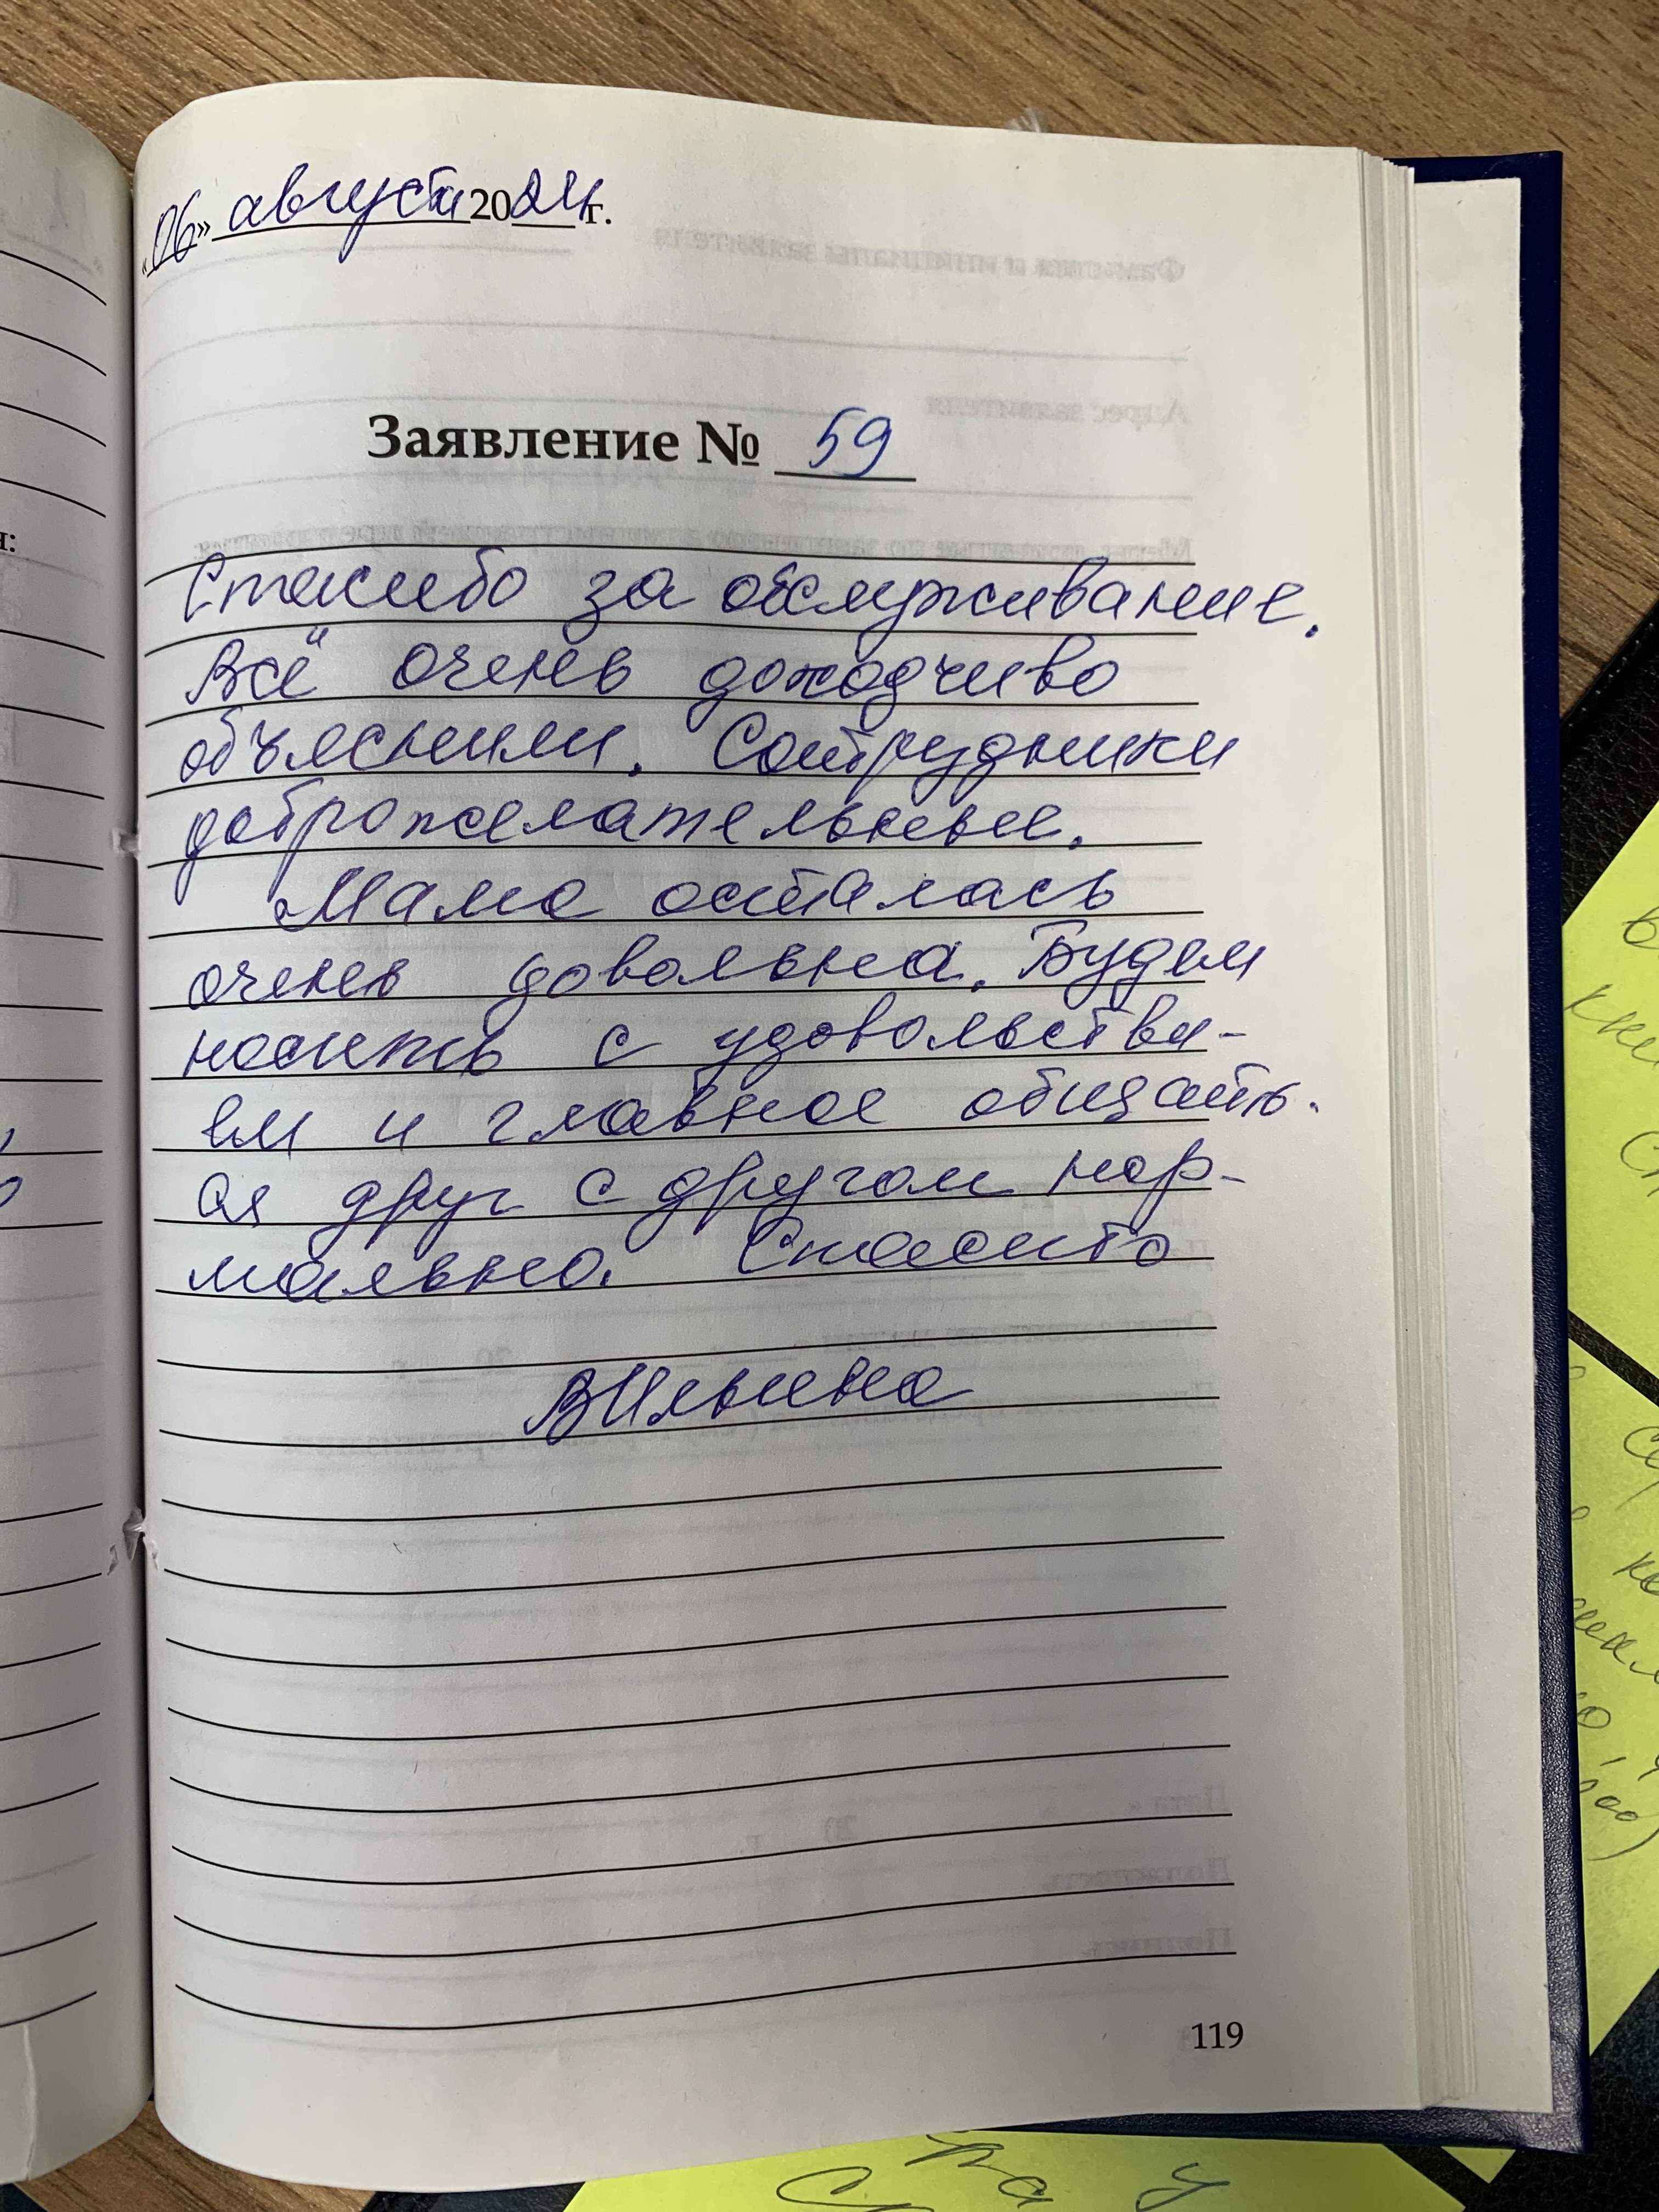 «06» августа 2024г.
Заявление № 59
Спасибо за обслуживание.
Всё очень доходчиво
объяснили. Сотрудники
доброжелательные.
Мама осталась
очень довольна. Будем
носить с удовольстви-
ем и главное общать-
ся друг с другом нор-
мально. Спасибо
ВИльина
119